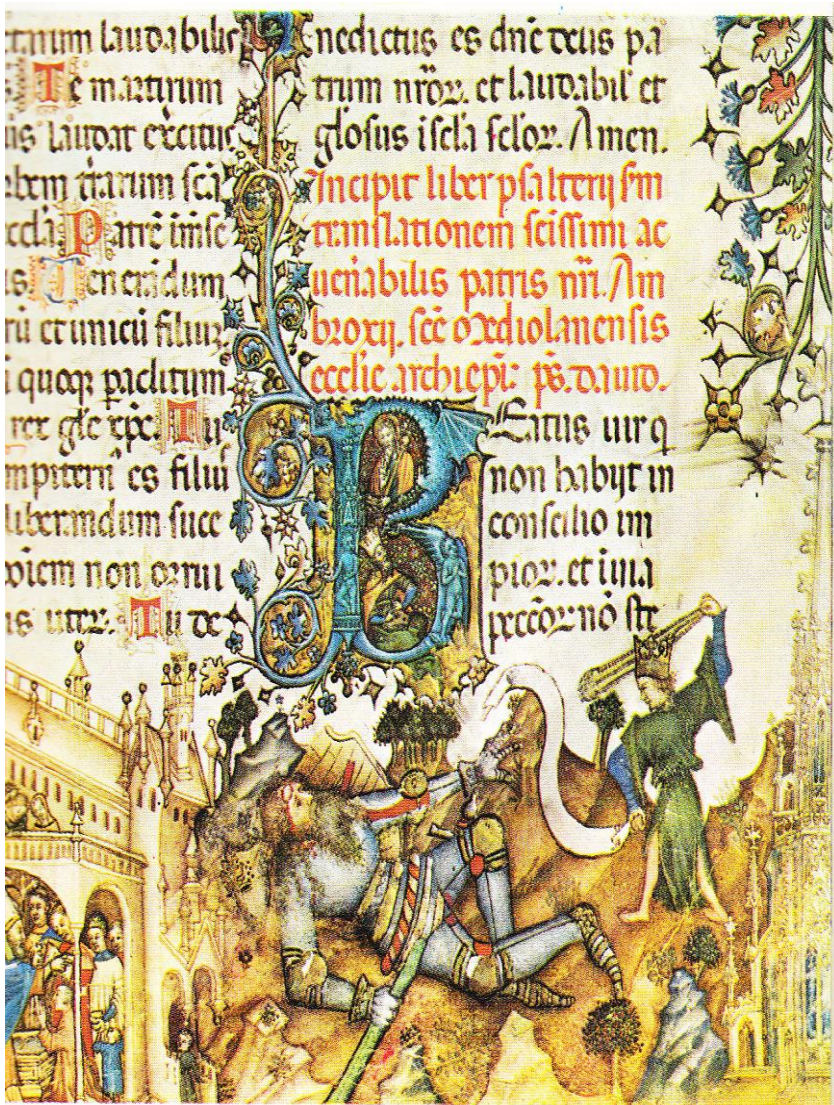 etarum laudabilis
Te martirum
us laudat excituc
rbem trarum scā
eccla Patrē īmse
s. Uenerādum
rū et unicū filiuz
quoqz paclitum
rex glē xpē. Tu
mpitern es filiu
liberandum susce
oiem non orrui
is uterz. Tu de
Benedictus es dnē deus pa
trum nroꝝ. et laudabil' et
glosus i scla scloꝝ. Amen.
Incipit liber psalterij sm
translationem scissimi ac
uenabilis patris nri. Am
broxij. scē Mediolanensis
ecclie archiepi: ps. dauid.
BEatus uir q
non habijt in
consilio im
pioꝝ. et i uia
peccoꝝ nō ste